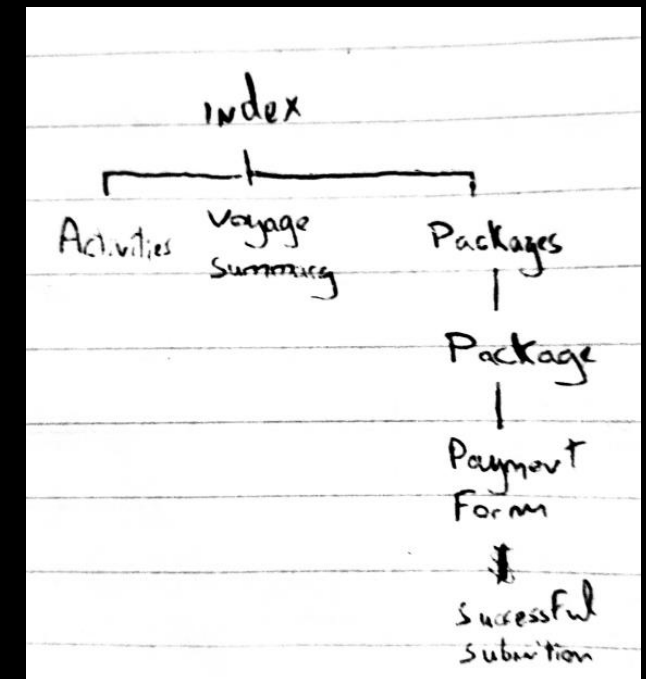 Index
Activities
Voyage
Summary
Packages
Package
Payment
Form
Successful